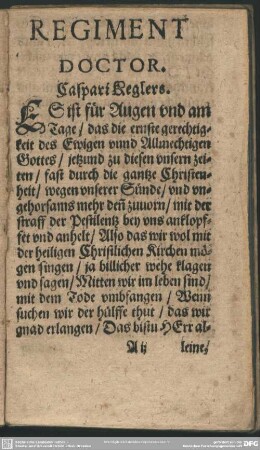 REGIMENT
DOCTOR.
Caspari Keglers.
ES ist für Augen vnd am
Tage / das die ernste gerechtig-
keit des Ewigen vnnd Allmechtigen
Gottes / jetzund zu diesen vnsern zei-
ten / fast durch die gantze Christen-
heit / wegen vnserer Sünde / vnd vn-
gehorsams mehr deñ zuuorn / mit der
straff der Pestilentz bey vns anklopf-
fet vnd anhelt / Also das wir wol mit
der heiligen Christlichen Kirchen mö-
gen singen / ja billicher wehe klagen
vnd sagen / Mitten wir im leben sind /
mit dem Tode vmbfangen / Wenn
suchen wir der hülffe thut / das wir
gnad erlangen / Das bistu HErr al-
A ij leine /